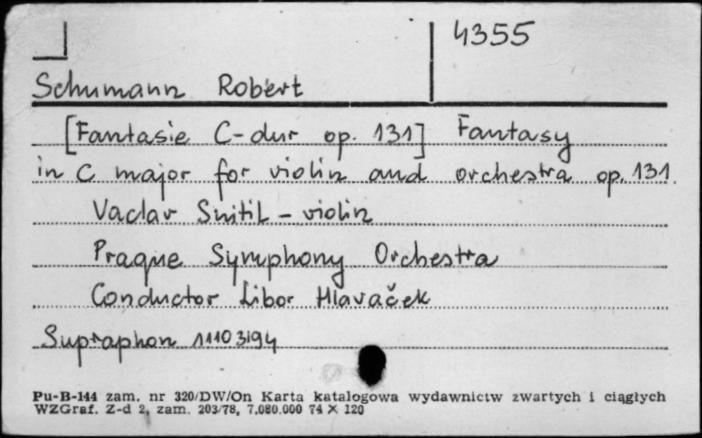 4355
Schumann Robert
[Fantasie C-dur op. 131] Fantasy
in C major for violin and orchestra op. 131
Vaclav Snitil - violin
Prague Symphony Orchestra
Conductor Libor Hlavaček
Supraphon 11103194
Pu-B-144 zam. nr 320/DW/On Karta katalogowa wydawnictw zwartych i ciągłych
WZGraf. Z-d 2, zam. 203/78, 7.080.000 74 X 120